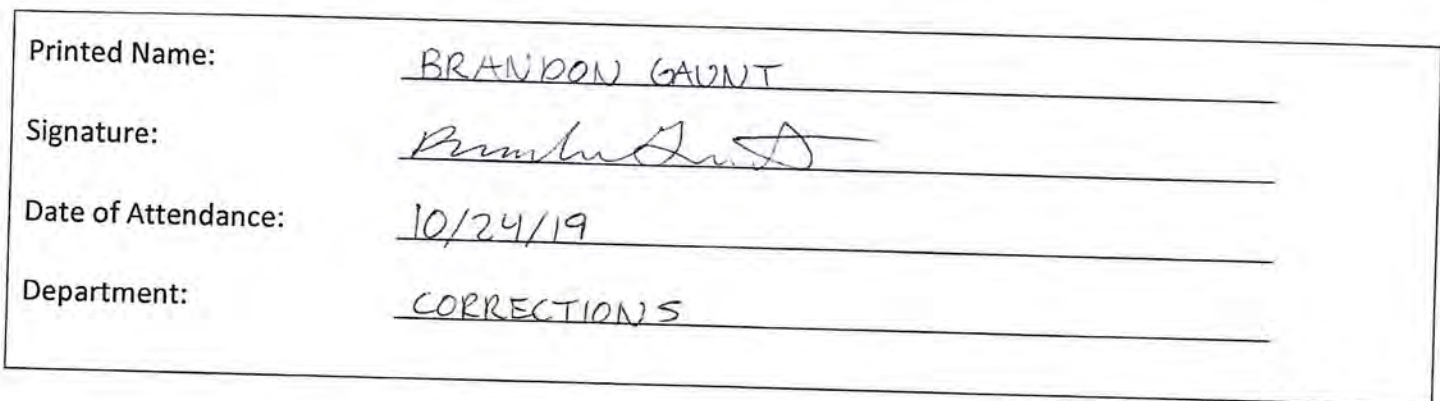 Printed Name: BRANDON GAUNT
Signature:
Date of Attendance: 10/24/19
Department: CORRECTIONS